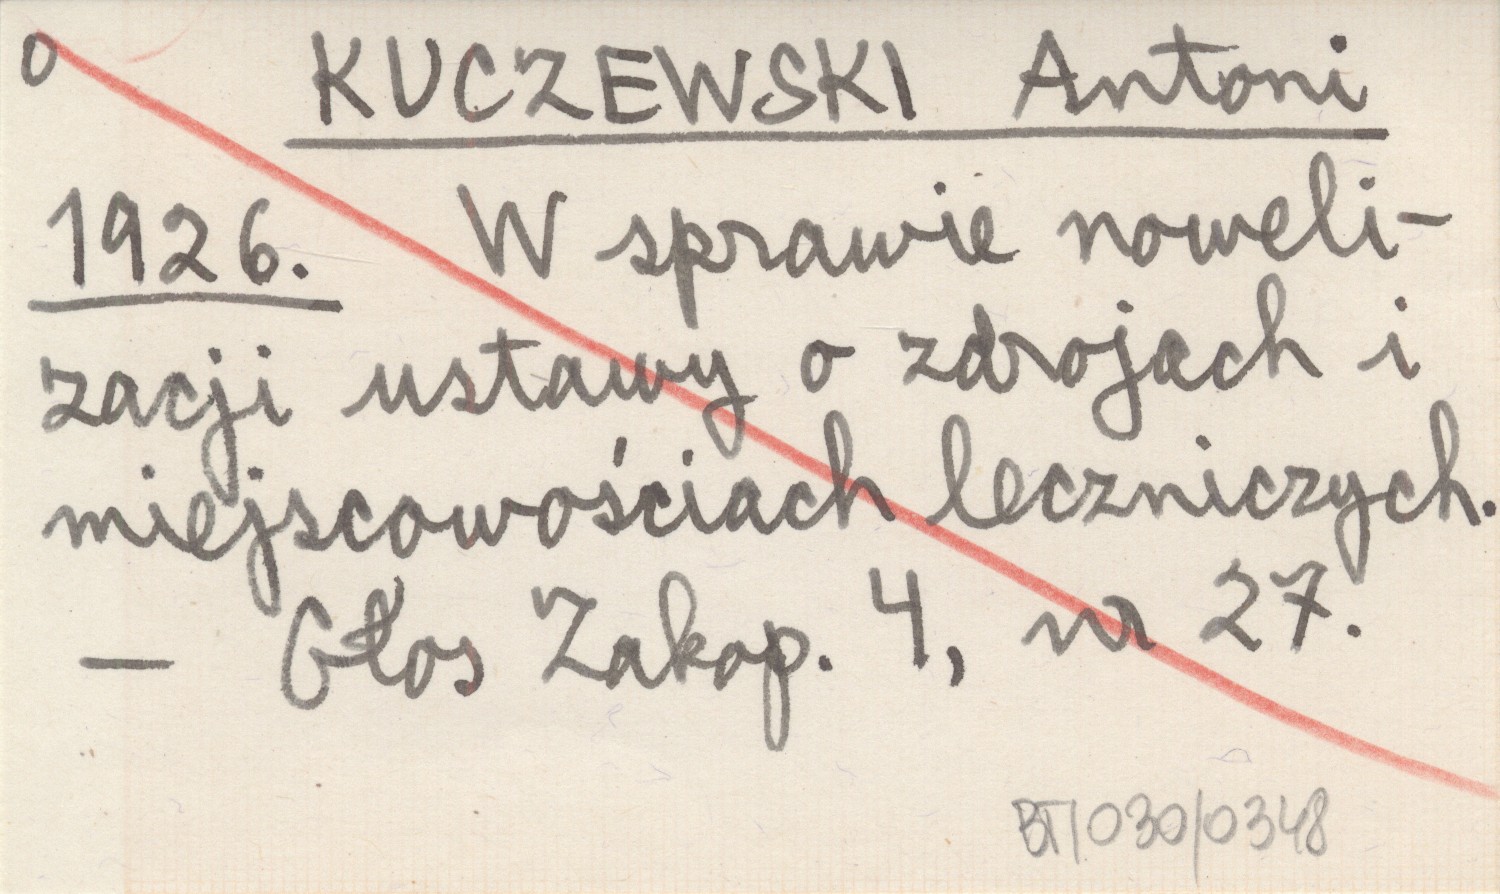 o KUCZEWSKI Antoni
1926. W sprawie noweli-
zacji ustawy o zdrojach i
miejscowościach leczniczych.
— Głos Zakop. 4, nr 27.
BT/030/0348